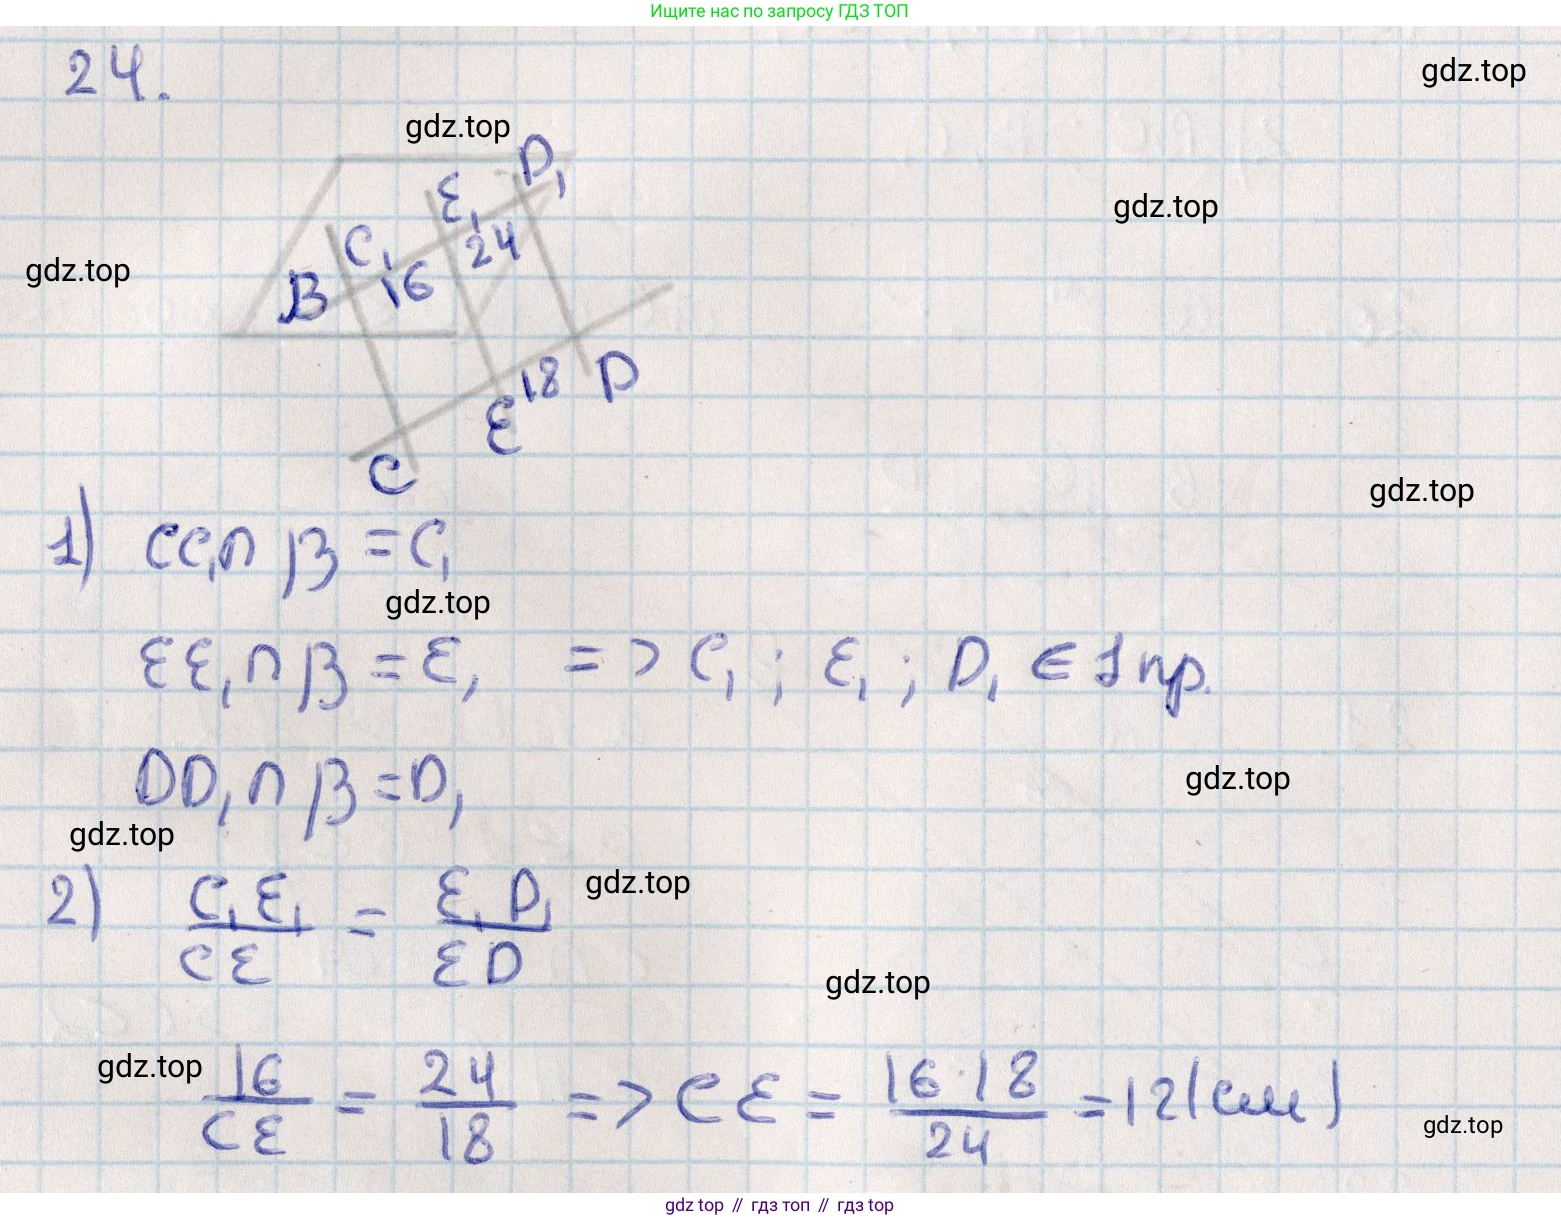 Ищите нас по запросу ГДЗ ТОП
24.
gdz.top
gdz.top
D₁
E₁
gdz.top
C₁
24
gdz.top
B
16
18
D
E
C
gdz.top
1) CC₁ ∩ β = C₁
gdz.top
EE₁ ∩ β = E₁ => C₁ ; E₁ ; D₁ ∈ 1 пр.
DD₁ ∩ β = D₁
gdz.top
gdz.top
2) C₁E₁/CE = E₁D₁/ED
gdz.top
gdz.top
gdz.top
16/CE = 24/18 => CE = 16·18/24 = 12 (см)
gdz.top
gdz top // гдз топ // гдз top